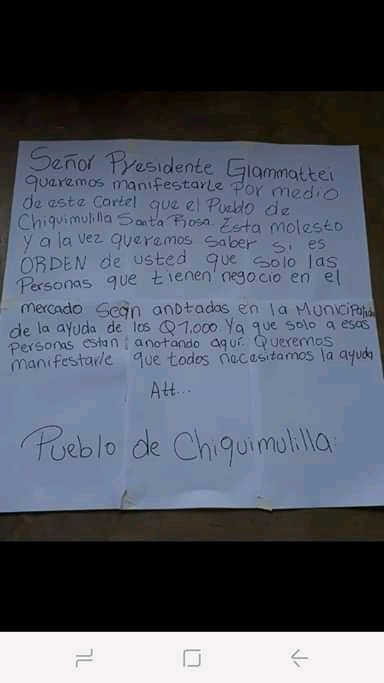 Señor Presidente Giammattei
queremos manifestarle Por medio
de este Cartel que el Pueblo de
Chiquimulilla Santa Rosa Esta molesto
Y a la vez queremos saber si es
ORDEN de usted que solo las
Personas que tienen negocio en el
mercado sean anotadas en la Municipalidad
de la ayuda de los Q1,000. Ya que solo a esas
Personas estan anotando aquí. Queremos
manifestarle que todos necesitamos la ayuda
Att...
Pueblo de Chiquimulilla